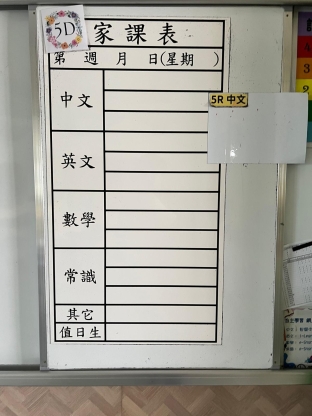 5D
家課表
第 週 月 日(星期 )
中文
5R 中文
英文
數學
常識
其它
值日生